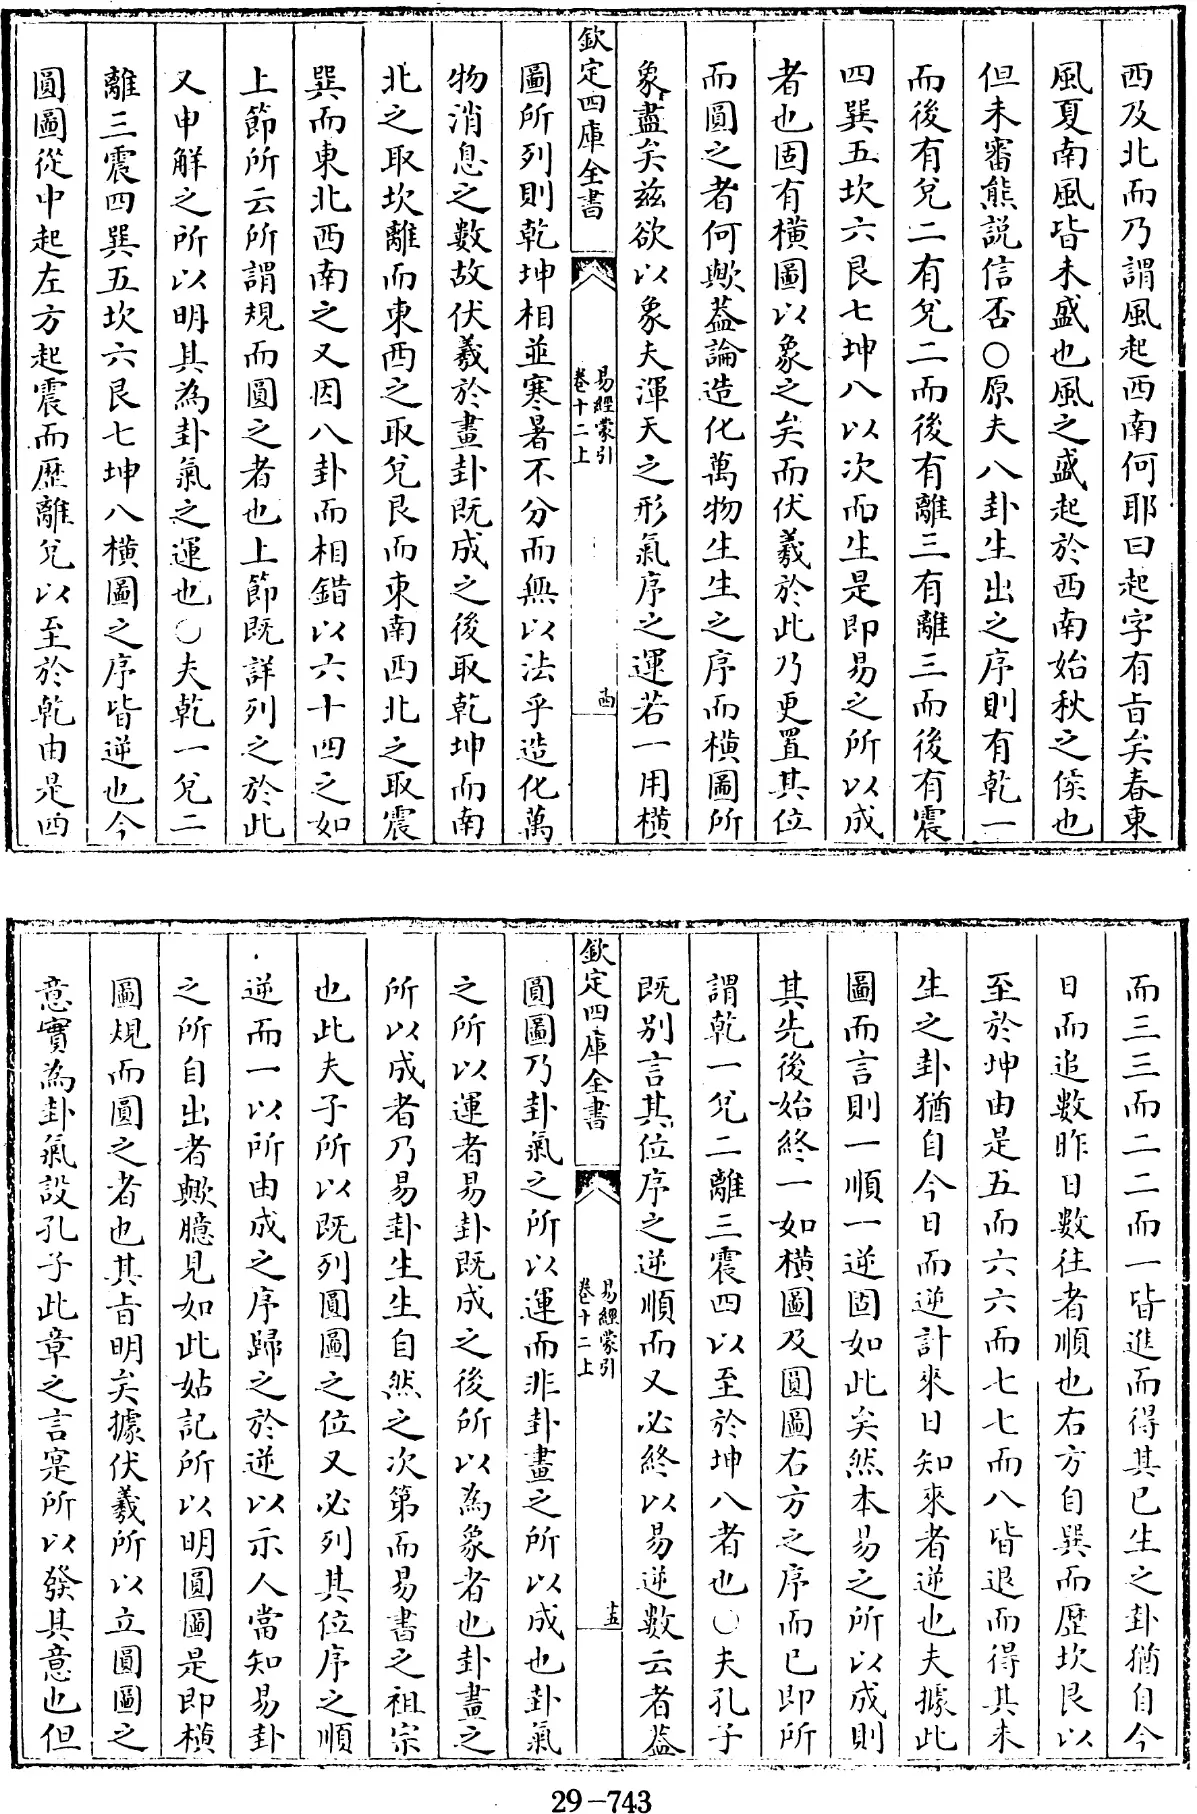 西及北而乃謂風起西南何耶曰起字有旨矣春東
風夏南風皆未盛也風之盛起於西南始秋之候也
但未審熊説信否○原夫八卦生出之序則有乾一
而後有兌二有兌二而後有離三有離三而後有震
四巽五坎六艮七坤八以次而生是即易之所以成
者也固有橫圖以象之矣而伏羲於此乃更置其位
而圓之者何歟蓋論造化萬物生生之序而橫圖所
象盡矣兹欲以象夫渾天之形氣序之運若一用橫
欽定四庫全書
易經蒙引
卷十二上
十四
圖所列則乾坤相並寒暑不分而無以法乎造化萬
物消息之數故伏羲於畫卦既成之後取乾坤而南
北之取坎離而東西之取兌艮而東南西北之取震
巽而東北西南之又因八卦而相錯以六十四之如
上節所云所謂規而圓之者也上節既詳列之於此
又申解之所以明其為卦氣之運也○夫乾一兌二
離三震四巽五坎六艮七坤八橫圖之序皆逆也今
圓圖從中起左方起震而歷離兌以至於乾由是四
而三三而二二而一皆進而得其已生之卦猶自今
日而追數昨日數往者順也右方自巽而歷坎艮以
至於坤由是五而六六而七七而八皆退而得其未
生之卦猶自今日而逆計來日知來者逆也夫據此
圖而言則一順一逆固如此矣然本易之所以成則
其先後始終一如橫圖及圓圖右方之序而已即所
謂乾一兌二離三震四以至於坤八者也○夫孔子
既別言其位序之逆順而又必終以易逆數云者蓋
欽定四庫全書
易經蒙引
卷十二上
十五
圓圖乃卦氣之所以運而非卦畫之所以成也卦氣
之所以運者易卦既成之後所以為象者也卦畫之
所以成者乃易卦生生自然之次第而易書之祖宗
也此夫子所以既列圓圖之位又必列其位序之順
逆而一以所由成之序歸之於逆以示人當知易卦
之所自出者歟臆見如此姑記所以明圓圖是即橫
圖規而圓之者也其旨明矣據伏羲所以立圓圖之
意實為卦氣設孔子此章之言寔所以發其意也但
29-743